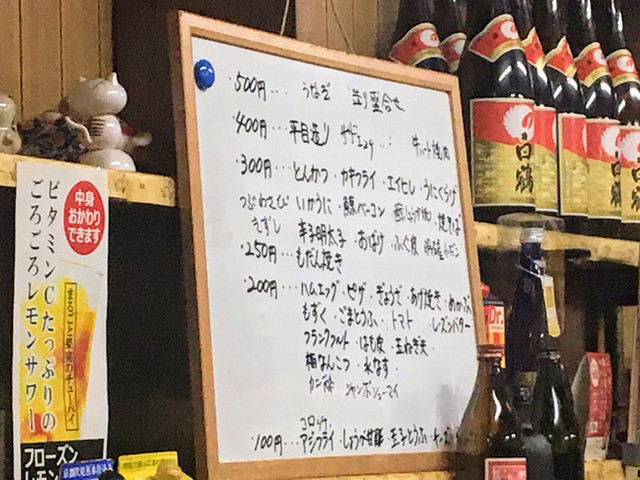 ・500円… うなぎ 造り盛合せ
・400円… 平目造り
・300円… とんかつ・カキフライ・エイヒレ・うにくらげ
つぶわさび いかうに・鯨ベーコン 焼そば
きずし 辛子明太子・おばけ・ふぐ皮
・250円… もだん焼き
・200円… ハムエッグ・ピザ・ぎょうざ・あげ焼き・めかぶ
もずく・ごまとうふ・トマト・レーズンバター
フランクフルト・はも皮・玉ねぎ天・
梅なんこつ・水なす・
ジャンボシューマイ
コロッケ・
・100円… アジフライ・しょうが甘酢・玉子とうふ・
中身
おかわり
できます
ビタミンCたっぷりの
ごろごろレモンサワー
まるごと果実のチューハイ
フローズン
レモン
白鶴
白鶴
Dr.